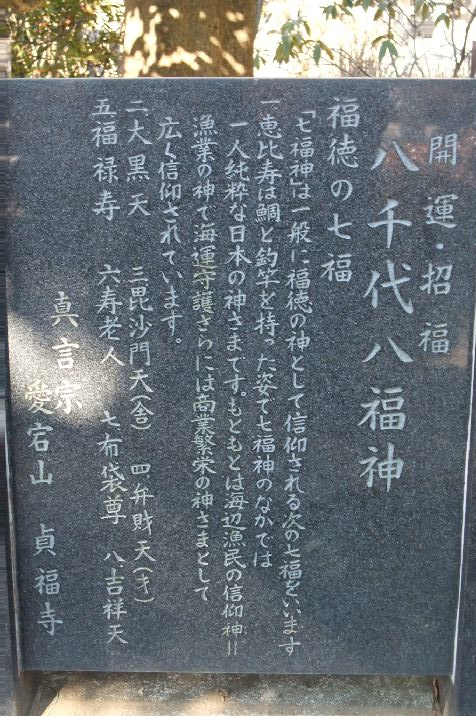 開運・招福
八千代八福神
福徳の七福
「七福神」は一般に福徳の神として信仰される次の七福をいいます
一恵比寿は鯛と釣竿を持った姿で七福神のなかでは
一人純粋な日本の神さまです。もともとは海辺漁民の信仰神＝
漁業の神で海運守護さらには商業繁栄の神さまとして
広く信仰されています。
二大黒天 三毘沙門天(舎) 四弁財天(才)
五福禄寿 六寿老人 七布袋尊 八吉祥天
真言宗
愛宕山 貞福寺